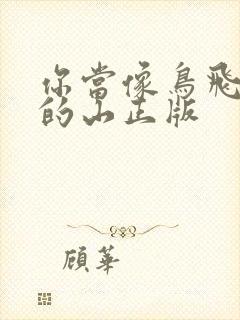 你當像鳥飛
的山正版
顧華